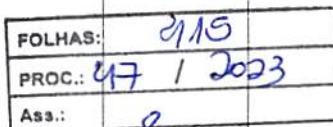 FOLHAS: 415
PROC.: 47 / 2023
Ass.: